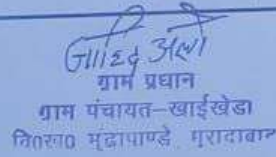 जाहिद अली
ग्राम प्रधान
ग्राम पंचायत-खाईखेडा
वि०ख० मूंढापाण्डे, मुरादाबाद